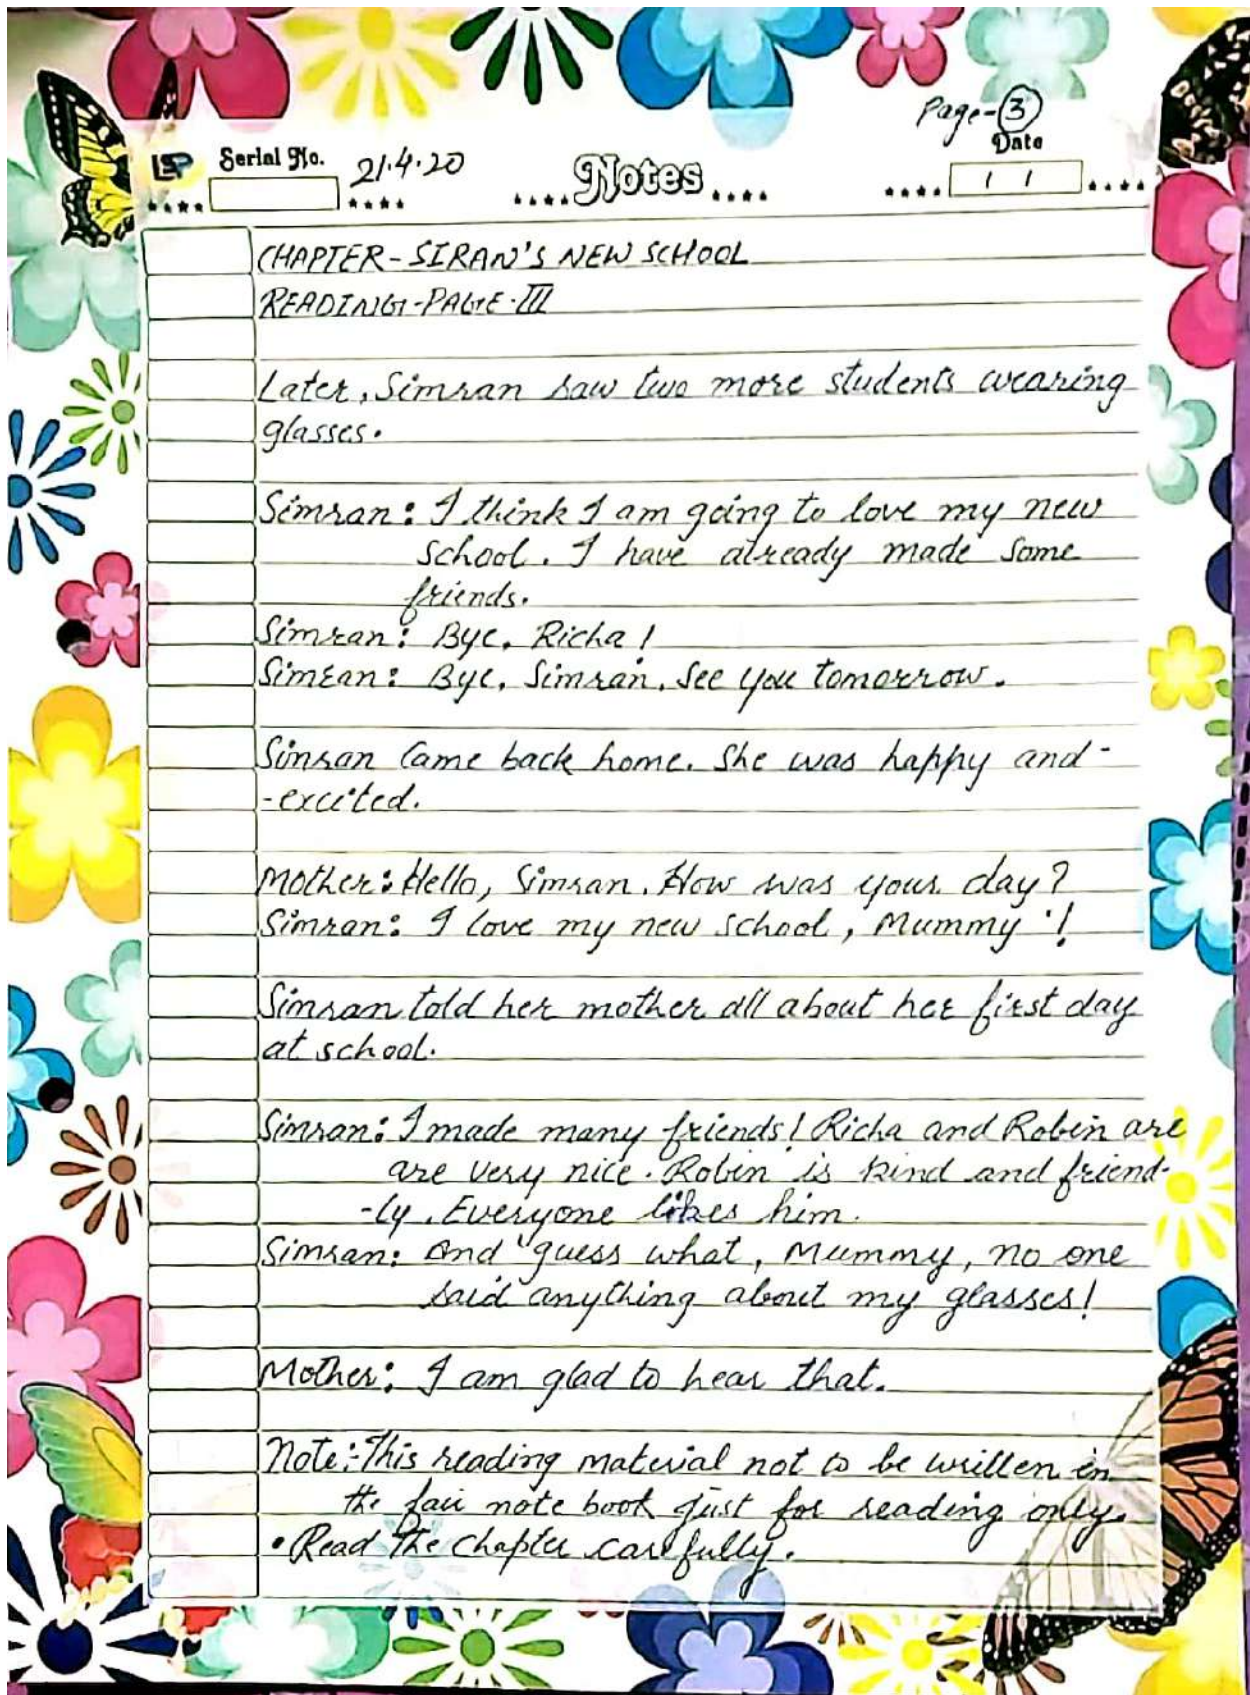 Page-3
Date
LSP
Serial No.
21.4.20
Notes
/ /
CHAPTER-SIRAN'S NEW SCHOOL
READING-PAGE-III
Later, Simran saw two more students wearing
glasses.
Simran: I think I am going to love my new
school. I have already made some
friends.
Simran: Bye, Richa!
Simran: Bye, Simran, See you tomorrow.
Simran Came back home. She was happy and-
-excited.
Mother: Hello, Simran. How was your day?
Simran: I love my new school, Mummy!
Simran told her mother all about her first day
at school.
Simran: I made many friends! Richa and Robin are
are very nice. Robin is kind and friend-
-ly. Everyone likes him.
Simran: And guess what, Mummy, no one
said anything about my glasses!
Mother: I am glad to hear that.
Note:-This reading material not to be written in
the fair note book just for reading only.
• Read the chapter carefully.